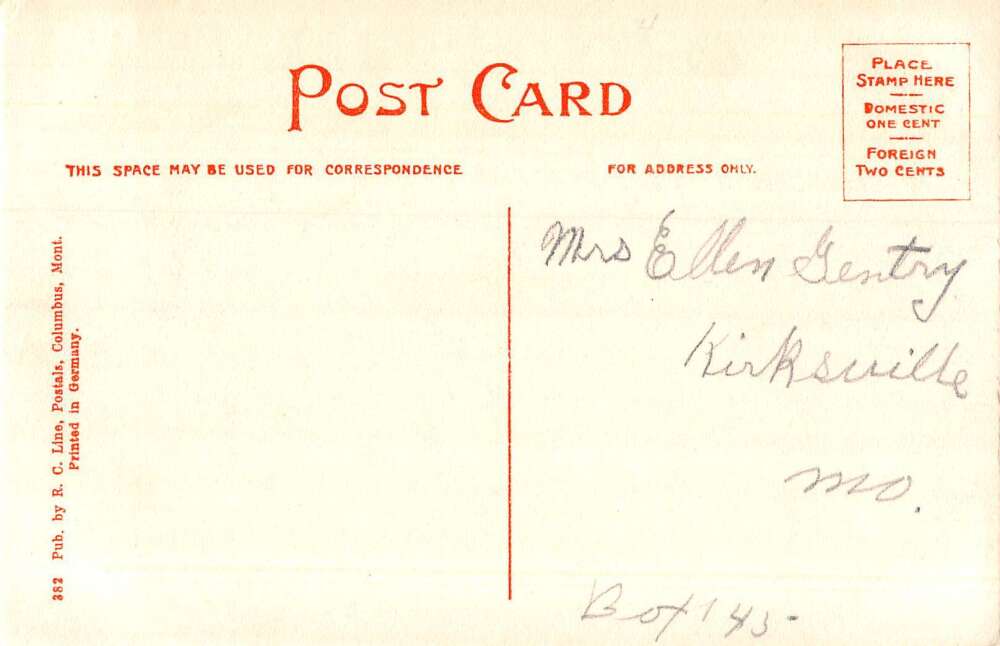 POST CARD
PLACE
STAMP HERE
DOMESTIC
ONE CENT
FOREIGN
TWO CENTS
THIS SPACE MAY BE USED FOR CORRESPONDENCE
FOR ADDRESS ONLY.
Mrs Ellen Gentry
Kirksville
Mo.
Box 145-
382 Pub. by R. C. Line, Postals, Columbus, Mont.
Printed in Germany.